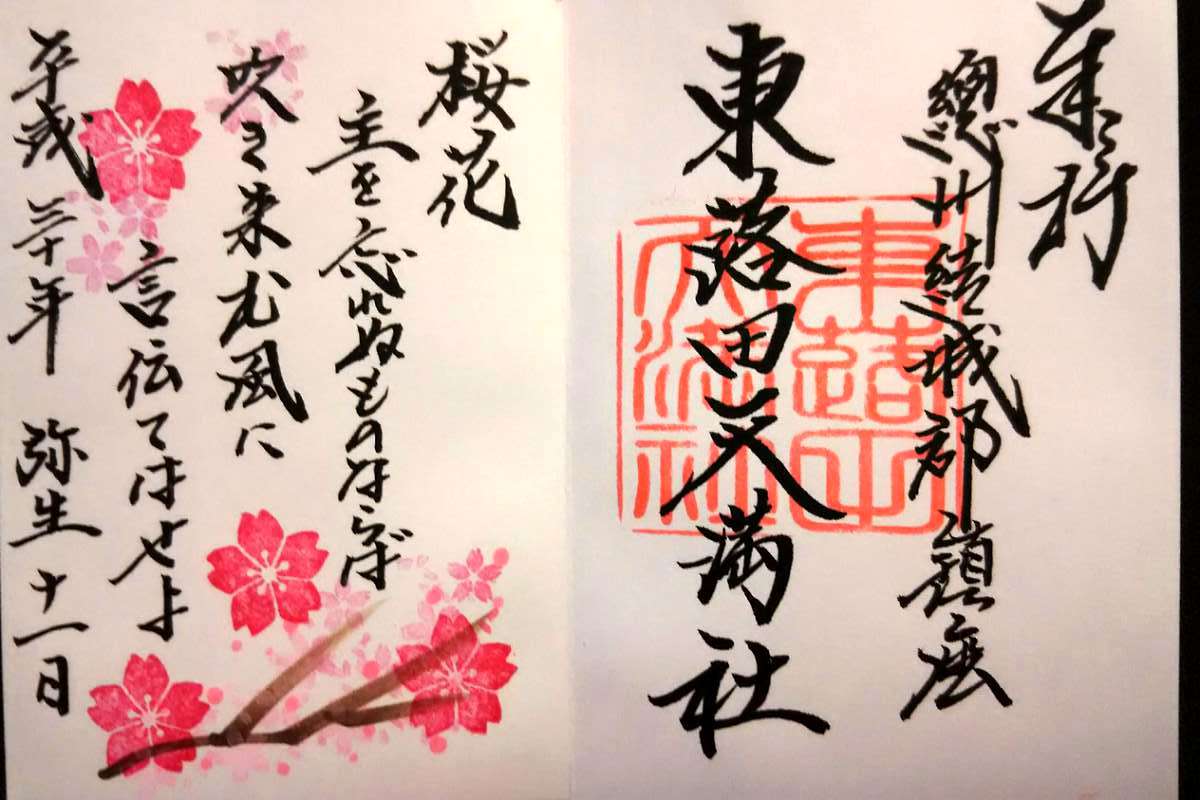 總州結城郡鎮座
東蕗田天満社
東蕗田
天満社
桜花
主を忘れぬものならば
吹き来む風に
言伝てはせよ
平成三十年 弥生 十一日